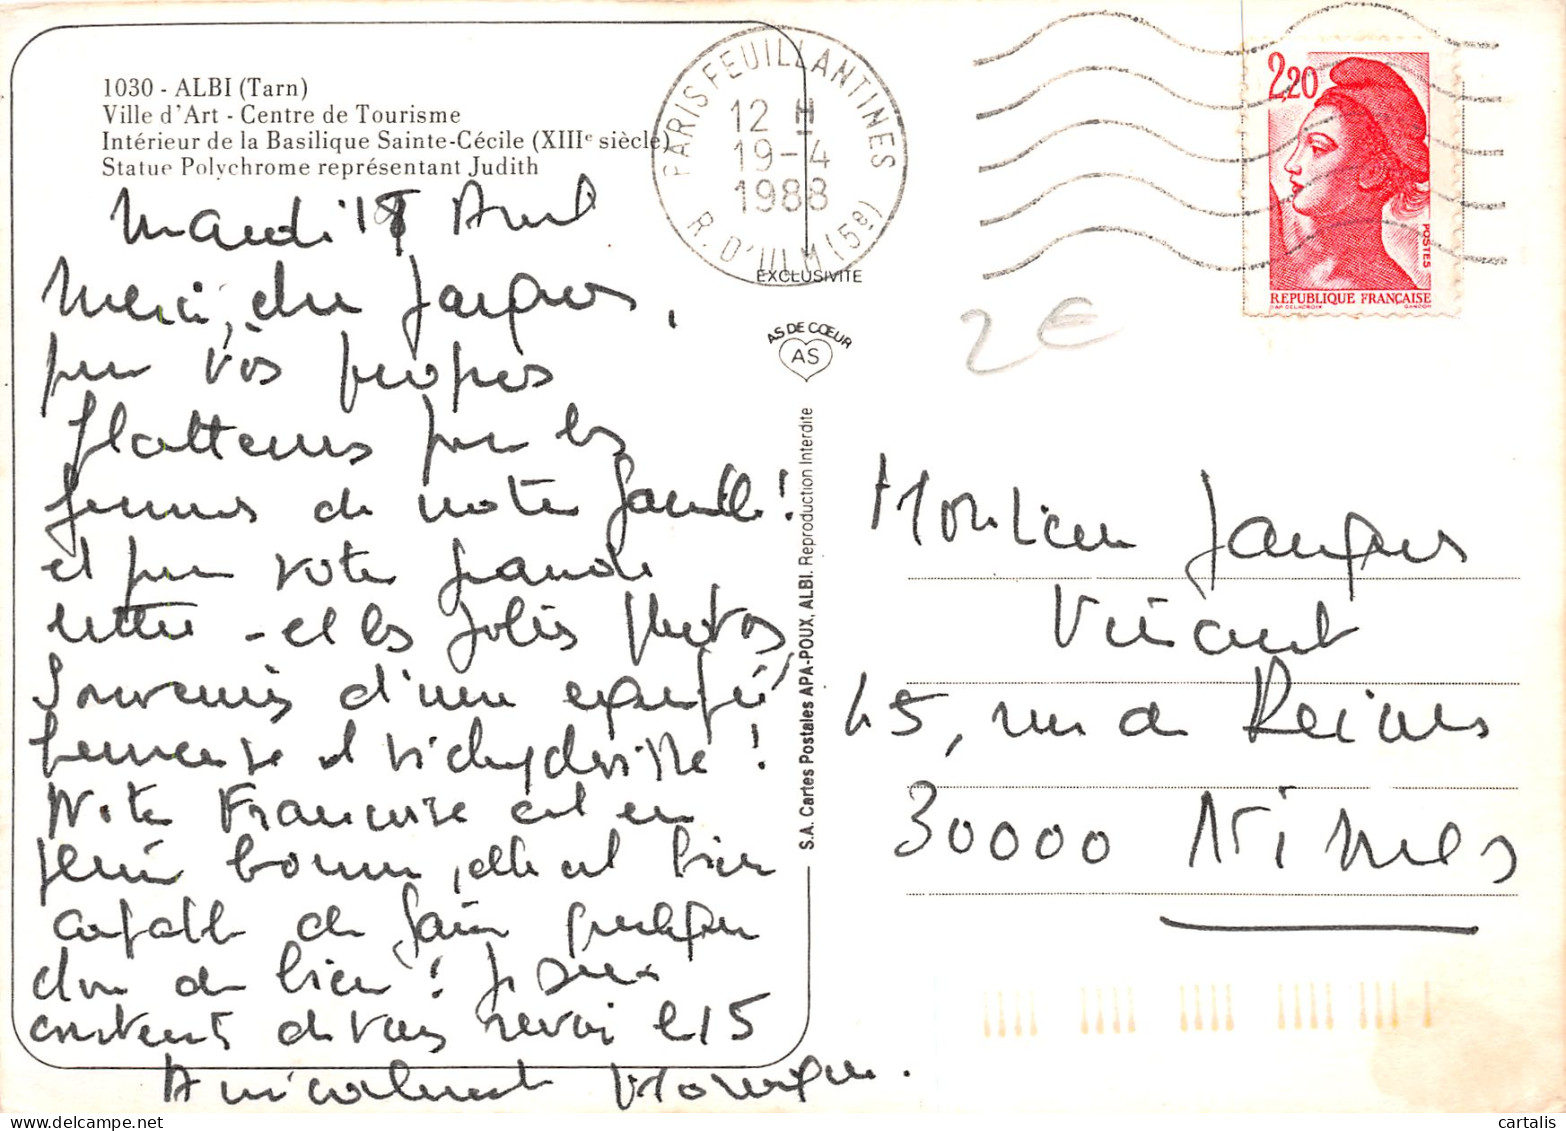 1030 - ALBI (Tarn)
Ville d'Art - Centre de Tourisme
Intérieur de la Basilique Sainte-Cécile (XIIIe siècle)
Statue Polychrome représentant Judith
Mardi 18 Avril
Merci, cher Jacques,
pour vos propos
flatteurs pour les
femmes de notre famille !
et pour votre grande
lettre - et les jolies photos,
souvenirs d'une
heureuse et !
Notre Française est en
bonne, elle est bien
capable de faire quelque
chose de bien ! Je suis
contente de vous revoir le 15
Amicalement Monique.
PARIS FEUILLANTINES
12 H
19-4
1988
R. D'ULM (5e)
2,20
POSTES
REPUBLIQUE FRANÇAISE
2€
EXCLUSIVITE
AS DE CŒUR
AS
S.A. Cartes Postales APA-POUX, ALBI. Reproduction Interdite
Monsieur Jacques
Vincent
45, rue de Reims
30000 Nîmes
cartalis